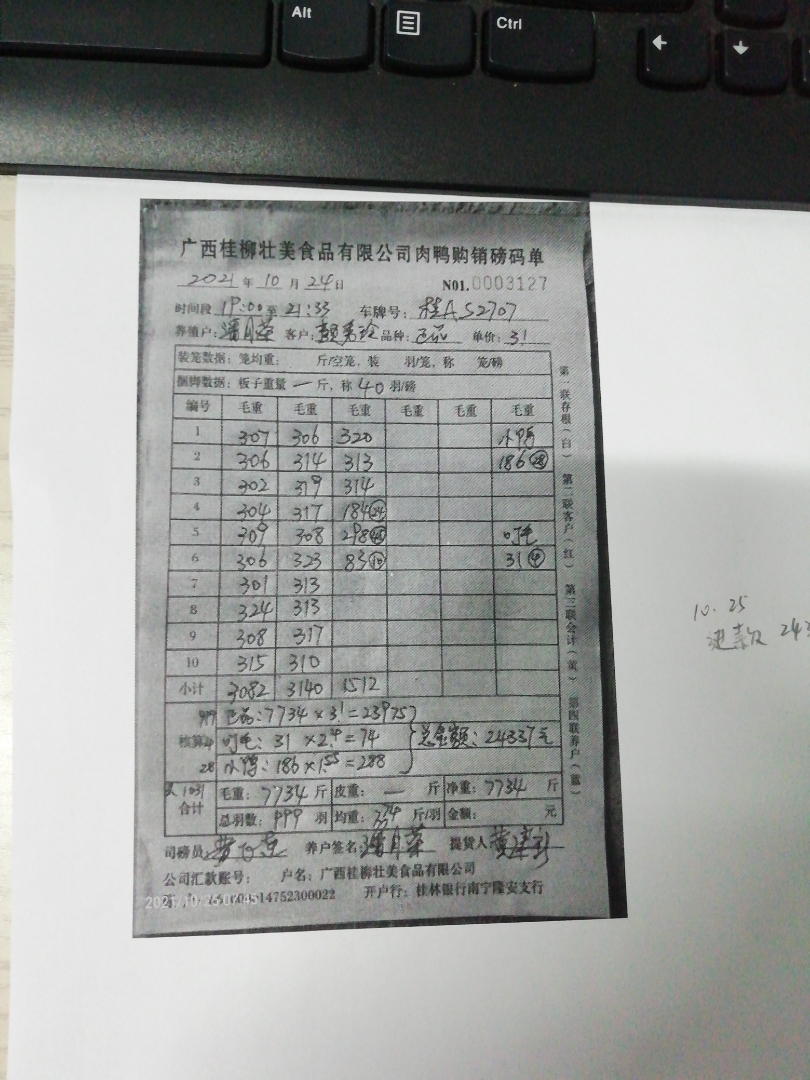 Alt
Ctrl
广西桂柳壮美食品有限公司肉鸭购销磅码单
2021年10月24日 N01.0003127
时间段 19:00至21:33 车牌号:桂A S2707
养殖户:潘月荣 客户: 品种:正品 单价:3.1
装笼数据:笼均重: 斤/空笼,装 羽/笼,称 笼/磅
捆脚数据:板子重量 一 斤,称 40 羽/磅
编号 毛重 毛重 毛重 毛重 毛重 毛重
1 307 306 320 小鸭
2 306 314 313 186 28
3 302 319 314
4 304 317 184 24
5 309 308 298 叮毛
6 306 323 83 31 4
7 301 313
8 324 313
9 308 317
10 315 310
小计 3082 3140 1512
999 正品:7734×3.1=23975
核算 4 叮毛:31×2.4=74 总金额:24337元
28 小鸭:186×1.55=288
1031
合计 毛重:7734斤 皮重:一斤 净重:7734斤
总羽数:999羽 均重:7.74斤/羽 金额: 元
司磅员: 养户签名:潘月荣 提货人
公司汇款账号: 户名:广西桂柳壮美食品有限公司
14752300022 开户行:桂林银行南宁隆安支行
第一联存根(白) 第二联客户(红) 第三联会计(黄) 第四联养户(蓝)
10.25
进款 243